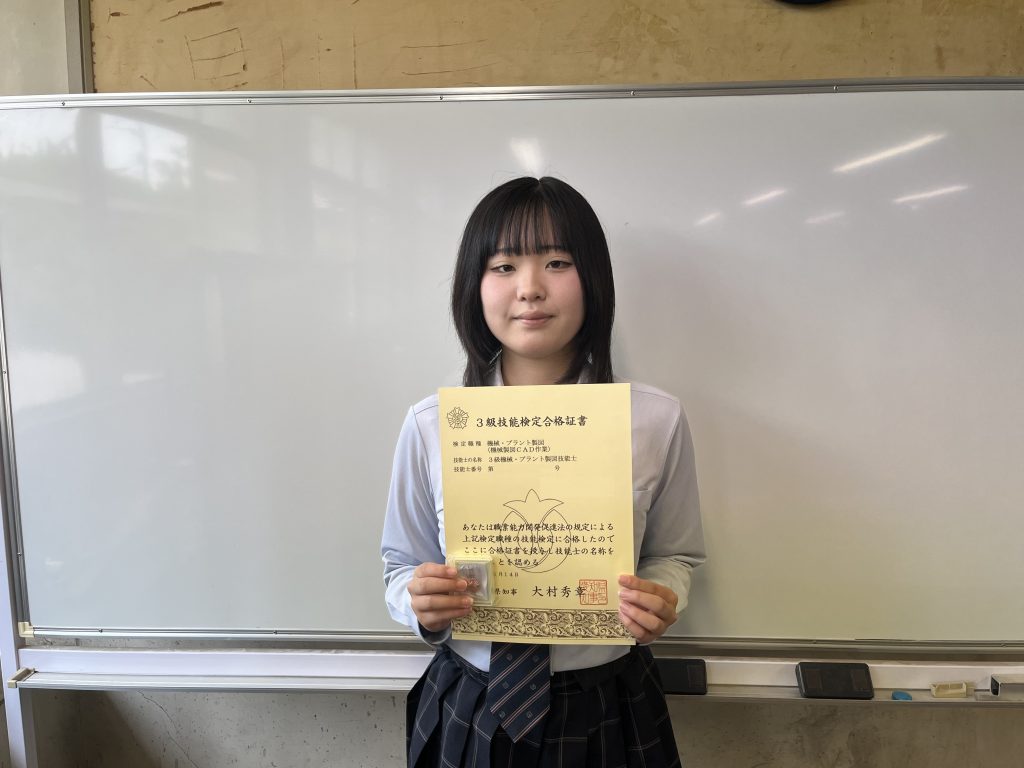 3級技能検定合格証書
検定職種 機械・プラント製図
(機械製図CAD作業)
技能士の名称 3級機械・プラント製図技能士
技能士番号 第 号
あなたは職業能力開発促進法の規定による
上記検定職種の技能検定に合格したので
ここに合格証書を授与し技能士の名称を
とを認める
月14日
県知事 大村秀章